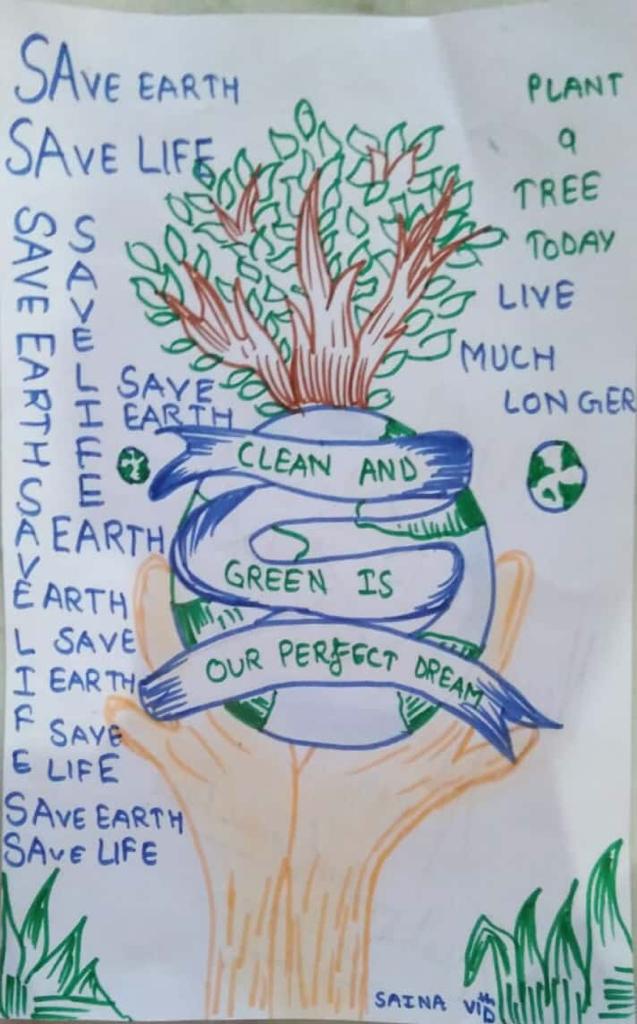 SAVE EARTH
SAVE LIFE
PLANT
a
TREE
TODAY
LIVE
MUCH
LONGER
SAVE EARTH SAVE LIFE
SAVE LIFE
SAVE
EARTH
EARTH
EARTH
SAVE
EARTH
SAVE
LIFE
SAVE EARTH
SAVE LIFE
CLEAN AND
GREEN IS
OUR PERFECT DREAM
SAINA VIIth D